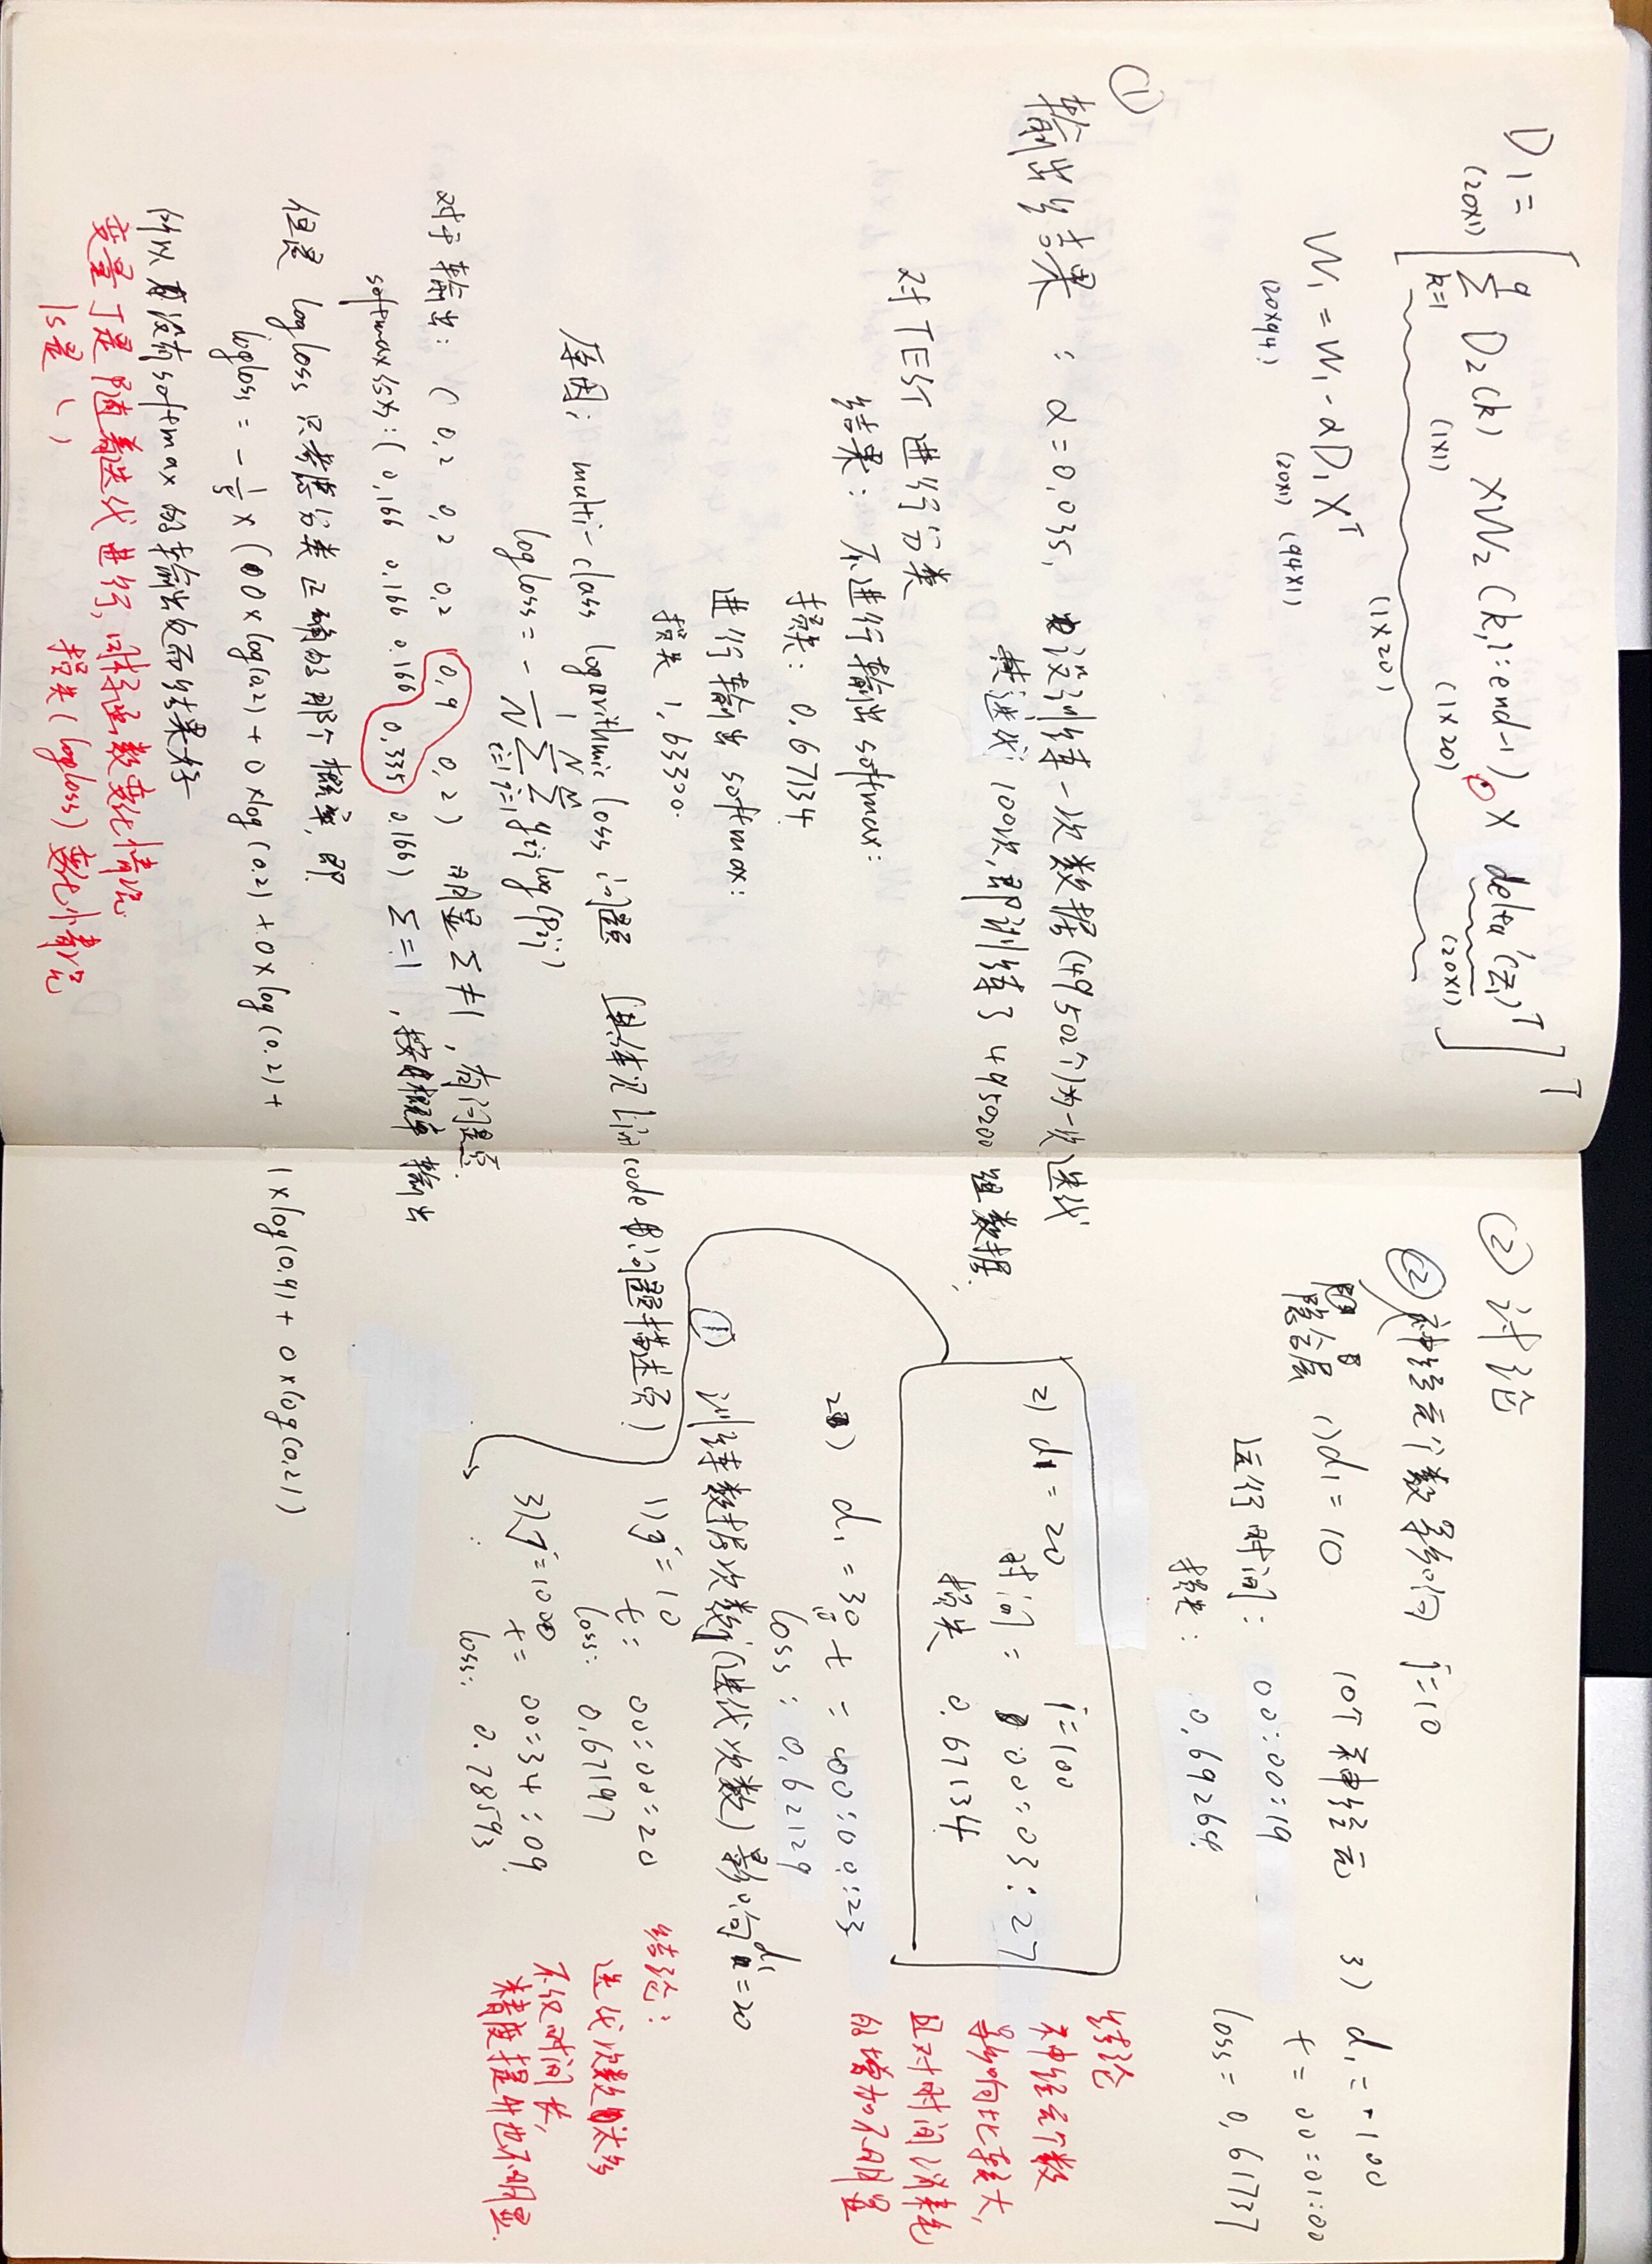 D1 = [ Σ(k=1, 9) D2(k) × W2(k, 1:end-1) .× delta'(Z1)^T ]^T
(20×1) (1×1) (1×20) (20×1)
(1×20)
W1 = W1 - αD1X^T
(20×94) (20×1) (94×1)
①
输出结果: α=0.035, 设训练一次数据(49502个)为一次迭代
共迭代100次,即训练了4950200组数据.
对TEST进行分类
结果: 不进行输出softmax:
损失: 0.67134
进行输出softmax:
损失 1.63300.
原因: multi-class logarithmic loss 问题 (具体见 code 问题描述页)
logloss = -1/N Σ(i=1, N) Σ(j=1, M) yij log(pij)
对于输出: ( 0.2 0.2 0.2 0.9 0.2) 明显Σ≠1, 有问题.
softmax后为: ( 0.166 0.166 0.166 0.335 0.166) Σ=1, 按概率输出
但是 logloss 只考虑分类正确的那个概率, 即
logloss = -1/5 × (0×log(0.2) + 0×log(0.2) + 0×log(0.2) + 1×log(0.9) + 0×log(0.2)
所以没有softmax的输出反而结果好
变量J是随着迭代进行, 目标函数变化情况.
ls是 ( ) 损失(logloss)变化情况
② 讨论
② 神经元个数影响 j=10
隐含层 1) d1=10 10个神经元
运行时间: 00:00:19
损失: 0.69264
3) d1=100
t= 00:01:00
loss= 0.61737
2) d1=20 j=100
时间= 00:03:27
损失 0.67134
2) d1=30 t= 00:00:23
loss: 0.62129
结论
神经元个数
影响比较大,
且对时间消耗
的增加不明显
① 训练数据次数j(迭代次数)影响 d1=20
1) j=10
t= 00:00:20
loss: 0.67197
3) j=1000
t= 00:34:09
loss: 0.78593
结论:
迭代次数太多
不仅时间长,
精度提升也不明显.